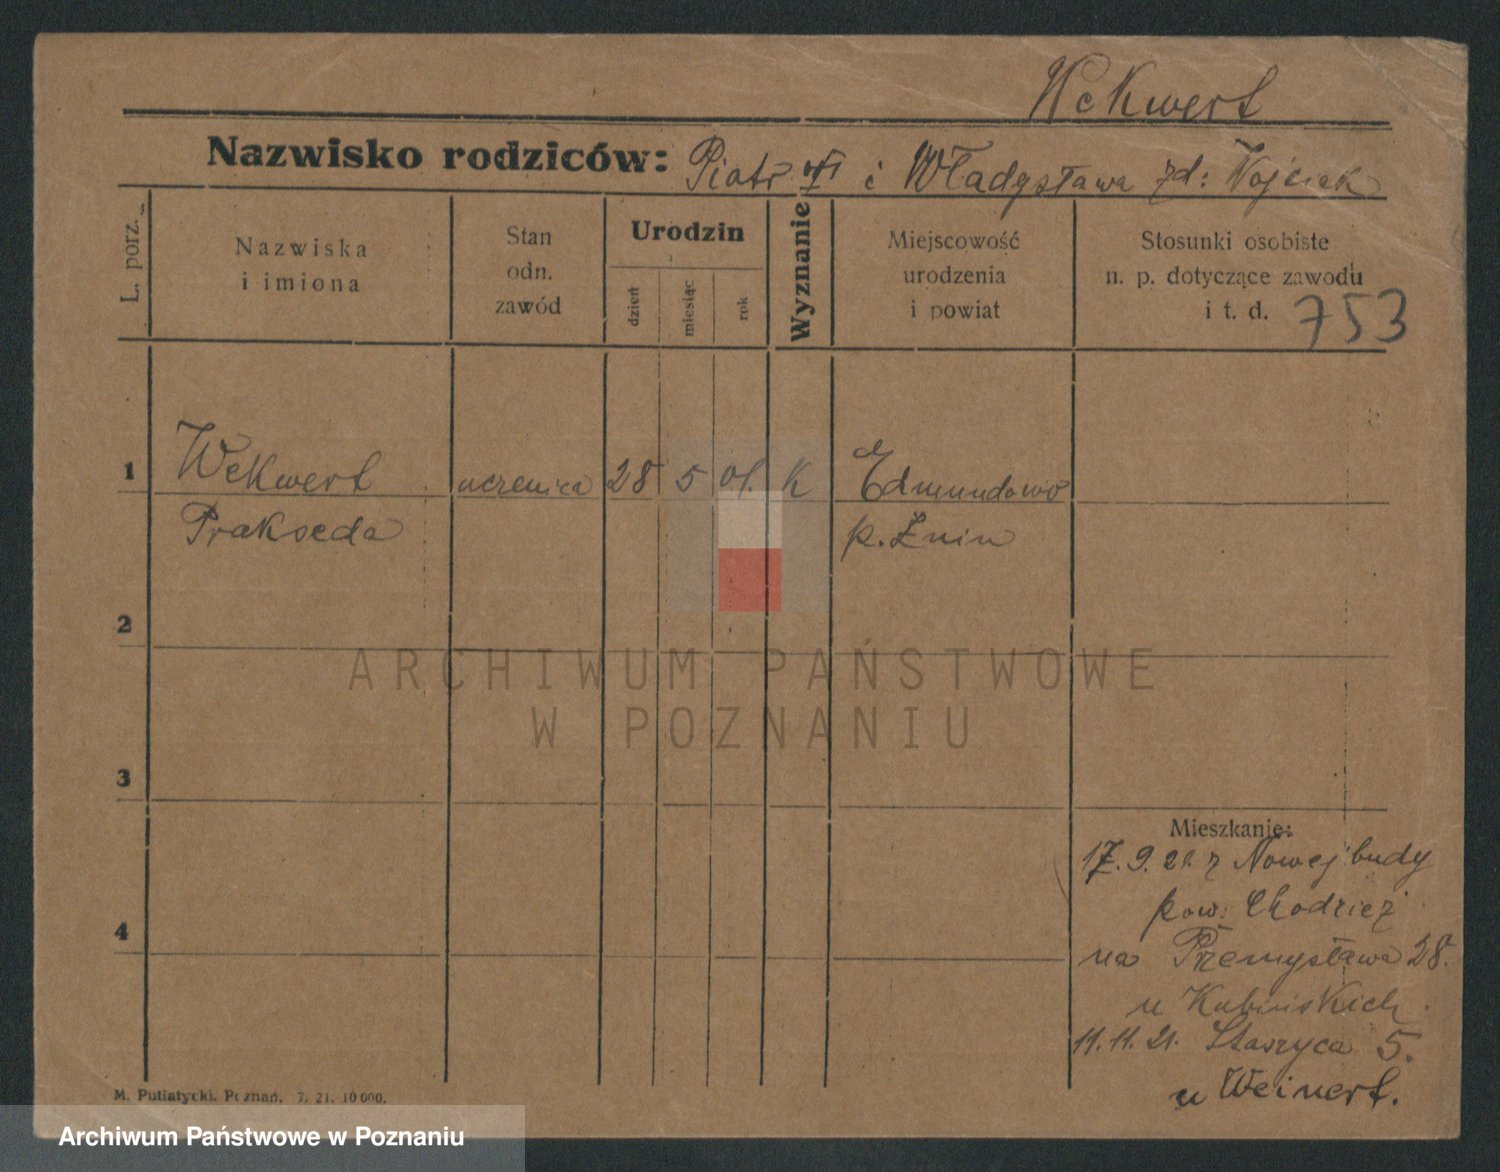 Wekwert
Nazwisko rodziców: Piotr i Władysława zd: Wojciak
L. porz.
Nazwiska
i imiona
Stan
odn.
zawód
Urodzin
dzień
miesiąc
rok
Wyznanie
Miejscowość
urodzenia
i powiat
Stosunki osobiste
n. p. dotyczące zawodu
i t. d.
753
1
Wekwert uczenica 28 5 01. K Edmundowo
Prakseda p. Żnin
2
3
4
Mieszkanie:
17.9.21. z Nowej budy
pow. Chodzież
na Przemysława 28.
u Kubińskich.
11.11.21. Staszyca 5.
u Weinert.
M. Putiatycki. Poznań. 7. 21. 10 000.
ARCHIWUM PAŃSTWOWE
W POZNANIU
Archiwum Państwowe w Poznaniu